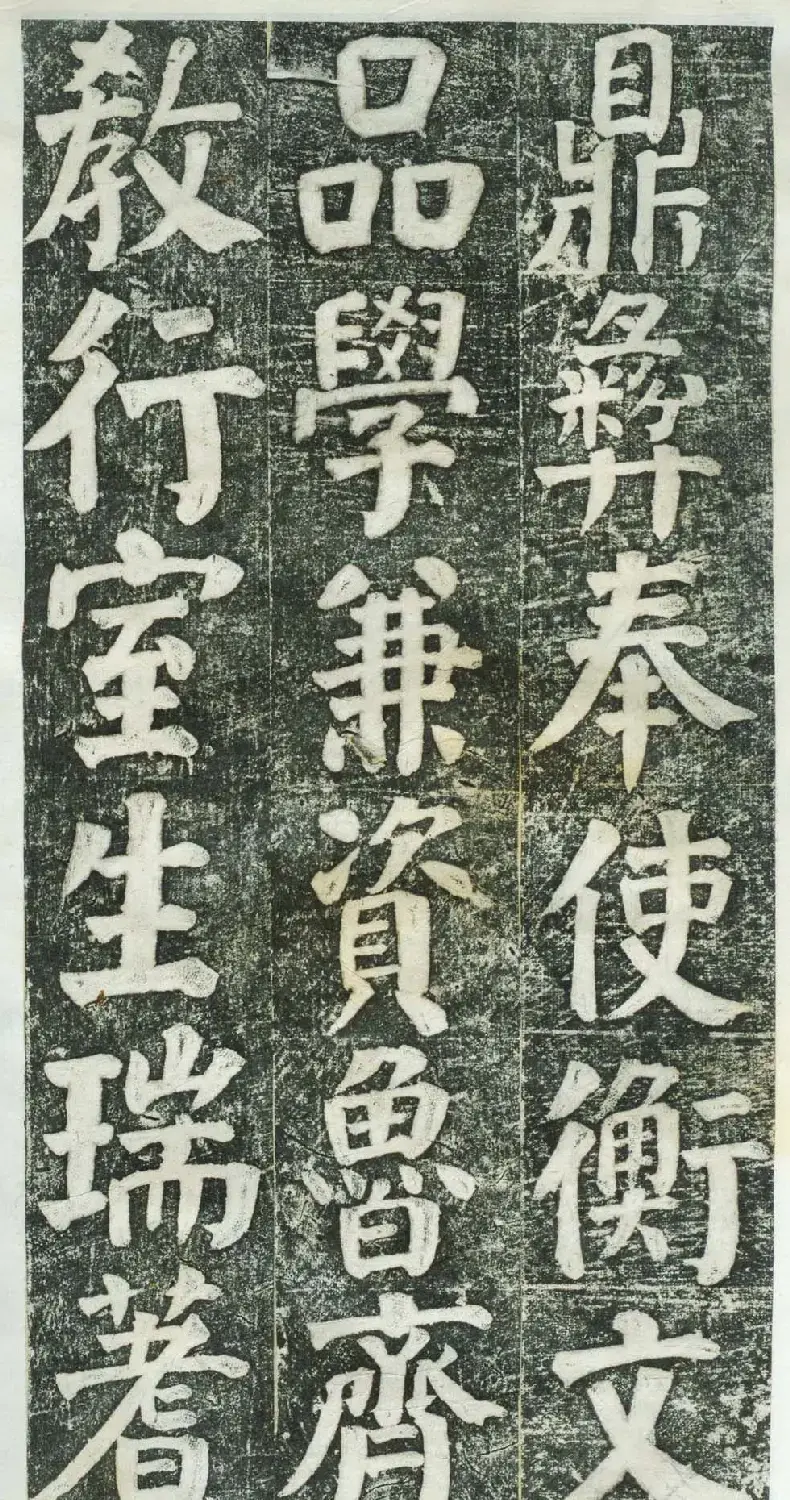 鼎彝奉使衡文
品學兼資魯齊
教行室生瑞蓍